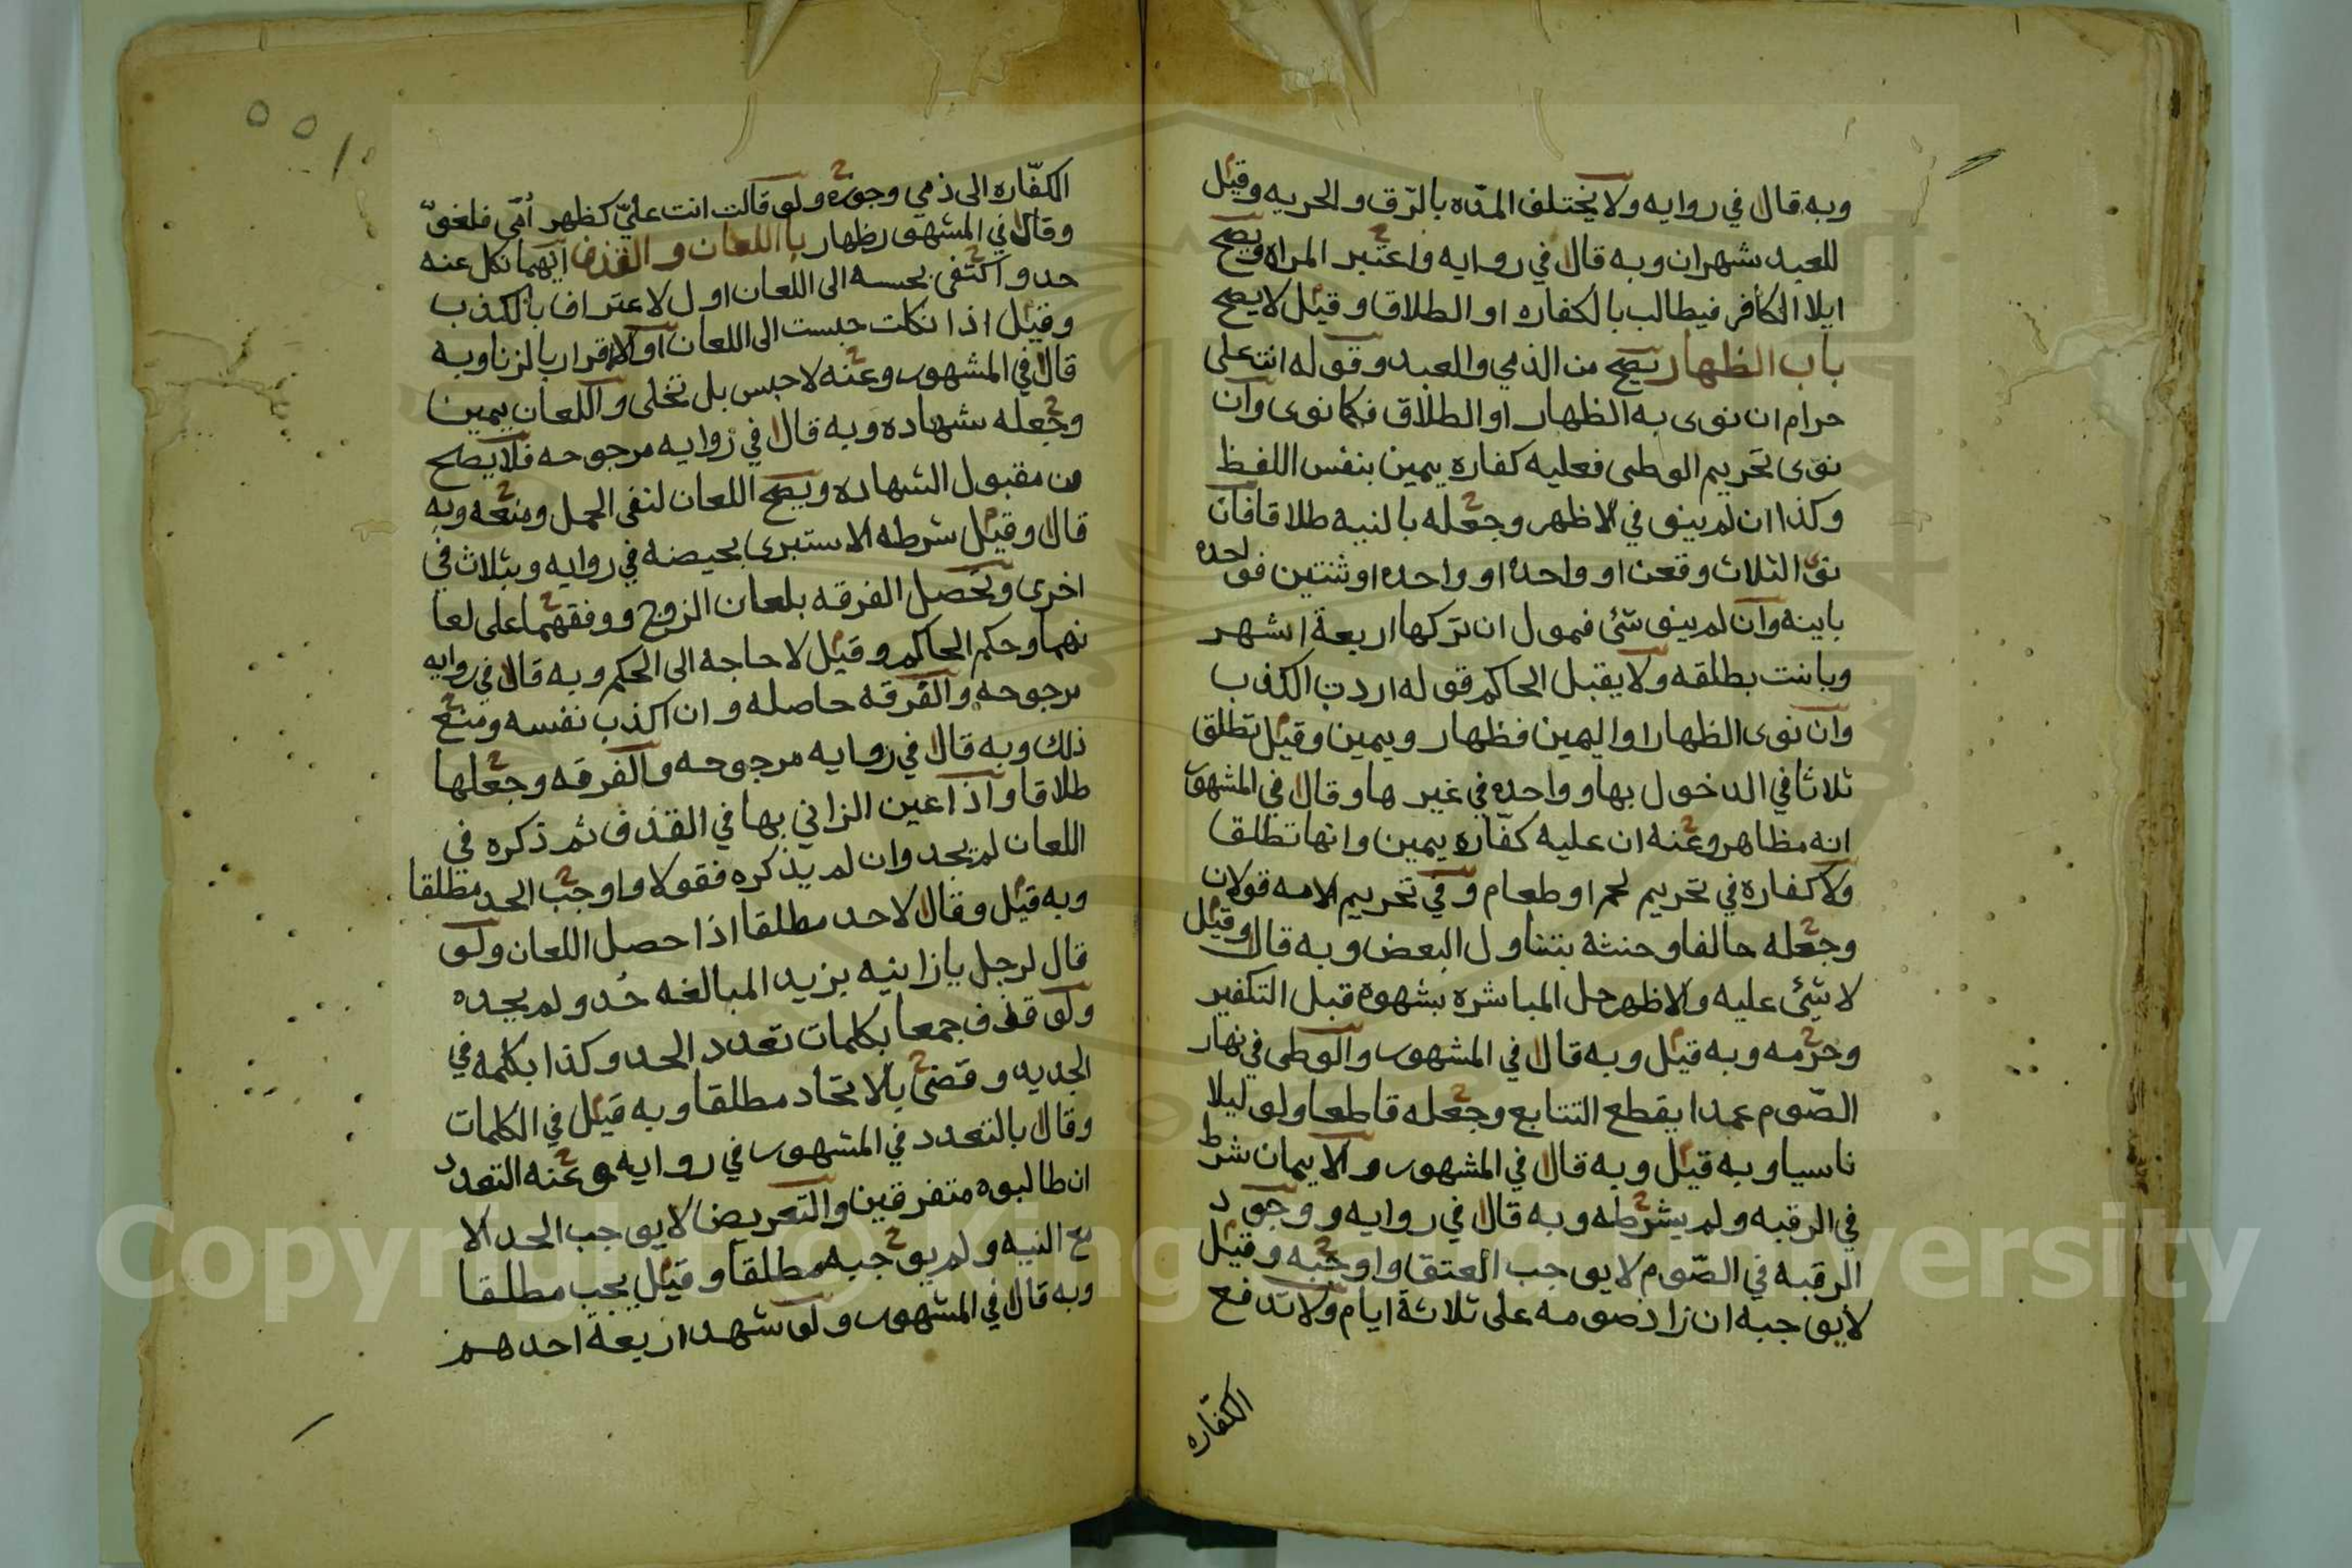 وبه قال في روايه ولا يختلف المده بالرّق والحريه وقيل
للعبد شهران وبه قال في روايه واعتبر المراه ويصح
ايلا الكافر فيطالب بالكفاره او الطلاق وقيل لا يصح
باب الظهار يصح من الذمي والعبد وقوله انت علي
حرام ان نوى به الظهار او الطلاق فكما نوى وان
نوى تحريم الوطي فعليه كفاره يمين بنفس اللفظ
وكذا ان لم ينو في الاظهر وجعله بالنيه طلاقا فان
نوى الثلاث وقعن او واحدة او واحده او ثنتين فواحده
باينه وان لم ينو شئ فمول ان تركها اربعة اشهر
وبانت بطلقه ولا يقبل الحاكم قوله اردت الكذب
وان نوى الظهار او اليمين فظهار ويمين وقيل تطلق
ثلاثا في الدخول بها وواحده في غيرها وقال في المشهور
انه مظاهر وعنه ان عليه كفّاره يمين وانها تطلقا
ولا كفاره في تحريم لحم او طعام وفي تحريم الامه قولان
وجعله حالفا وحنثه بتناول البعض وبه قال وقيل
لا شئ عليه والاظهر حل المباشره بشهوة قبل التكفير
وحرّمه وبه قيل وبه قال في المشهور والوطي في نهار
الصّوم عمدا يقطع التتابع وجعله قاطعا ولو ليلا
ناسيا وبه قيل وبه قال في المشهور والايمان شرط
في الرقبه ولم يشرطه وبه قال في روايه ووجود
الرقبه في الصّوم لا يوجب العتق واوجبه وقيل
لا يوجبه ان زاد صومه على ثلاثة ايام ولا تدفع
الكفّاره
الكفّاره الى ذمي وجوزه ولو قالت انت عليّ كظهر اُمّي فلغوٌ
وقال في المشهور ظهار باب اللعان والقذف ايهما نكل عنه
حد واكتفى بحبسه الى اللعان او الاعتراف بالكذب
وقيل اذا نكلت حبست الى اللعان او الاقرار بالزنا وبه
قال في المشهور وعنه لا حبس بل تخلى واللعان يمين
وجعله شهاده وبه قال في روايه مرجوحه فلا يصح
من مقبول الشهاده ويصح اللعان لنفي الحمل ومنعه وبه
قال وقيل شرطه الاستبرى بحيضه في روايه وبثلاث في
اخرى وتحصل الفرقه بلعان الزوج ووفقهما على لعا
نهما وحكم الحاكم وقيل لا حاجه الى الحكم وبه قال في روايه
مرجوحه والفرقه حاصله وان اكذب نفسه ومنع
ذلك وبه قال في روايه مرجوحه والفرقه وجعلها
طلاقا واذا عين الزاني بها في القذف ثم ذكره في
اللعان لم يحد وان لم يذكره فقولا واوجب الحد مطلقا
وبه قيل وقال لا حد مطلقا اذا حصل اللعان ولو
قال لرجل يا زانيه يريد المبالغه حُد ولم يحده
ولو قذف جمعا بكلمات تعدد الحد وكذا بكلمه في
الجديد وقضى بالاتحاد مطلقا وبه قيل في الكلمات
وقال بالتعدد في المشهور في روايه وعنه التعدد
ان طالبوه متفرقين والتعريض لا يوجب الحد الا
مع النيه ولم يوجبه مطلقا وقيل يجب مطلقا
وبه قال في المشهور ولو شهد اربعة احدهم
Copyright © King Saud University